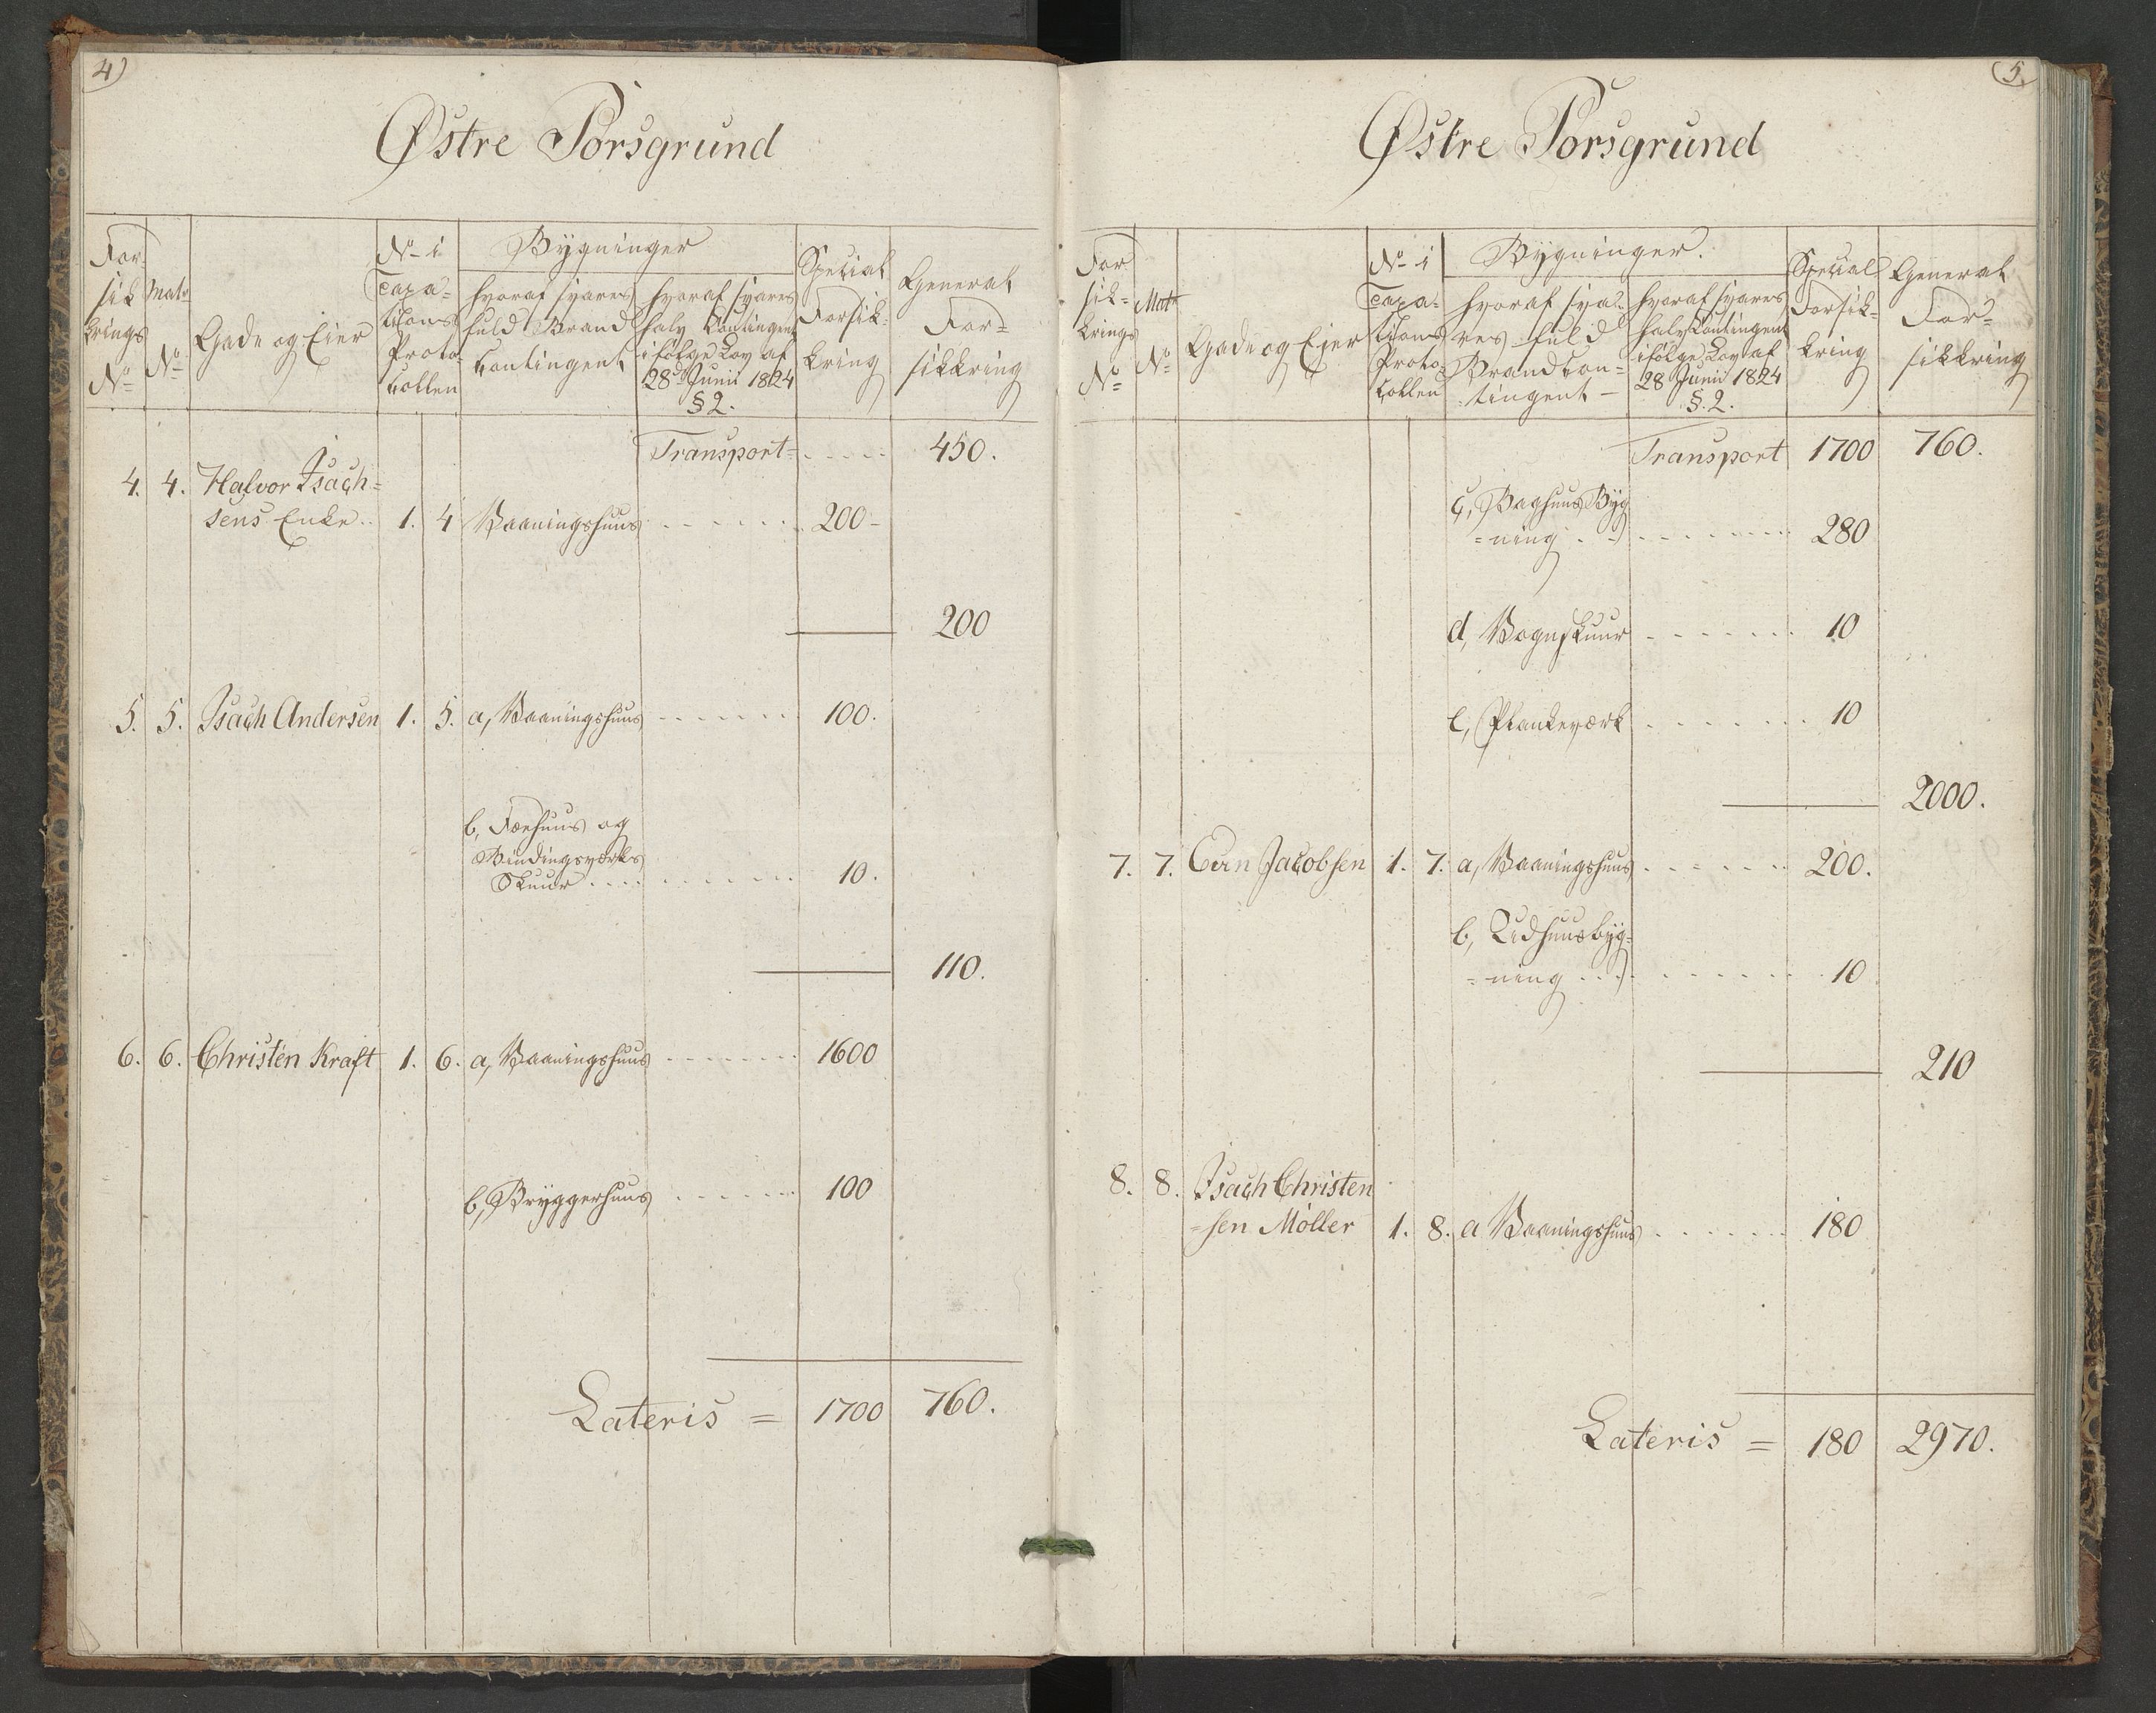 4)
Østre Porsgrund
For
sik
krings
No
Matr
No
Gade og Eier
No i
Taxa-
tions
Proto-
collen
Bygninger
hvoraf svares
fuld Brand
Contingent
hvoraf svares
halv Contingent
ifølge Lov af
28de Junii 1824
§ 2.
Special
Forsik-
kring
General
For-
sikkring
Transport = . . . . . 450.
4. 4. Halvor Isach-
sens Enke .. 1. 4 Vaaningshuus . . . . . . 200 -
200
5. 5. Isach Andersen 1. 5. a, Vaaningshuus . . . . . . 100.
b, Fæehuus og
Bindingsværks
Skuur . . . . . . . . . . 10.
110.
6. 6. Christen Kraft 1. 6. a, Vaaningshuus . . . . . . . 1600
b, Bryggerhuus . . . . . . 100
Lateris = 1700 760.
5.
Østre Porsgrund
For
sik-
krings
No
Matr
No
Gade og Ejer
No i
Taxa-
tions
Proto-
collen
Bygninger.
hvoraf sva-
res fuld
Brand Con-
tingent -
hvoraf svares
halv Contingent
ifølge Lov af
28 Junii 1824
§. 2.
Special
Forsik-
kring
General
For-
sikkring
Transport 1700 760.
c, Baghuus Byg
=ning . . . . . . . . . . 280
d, Vognskuur . . . . . . . 10
e, Plankeværk . . . . . . . 10
2000.
7. 7. Even Jacobsen 1. 7. a, Vaaningshuus . . . . . . 200.
b, Udhuusbyg-
=ning . . . . . . . . . . 10
210
8. 8. Isach Christen
=sen Møller 1. 8. a Vaaningshuus . . . . . . 180
Lateris = 180 2970.